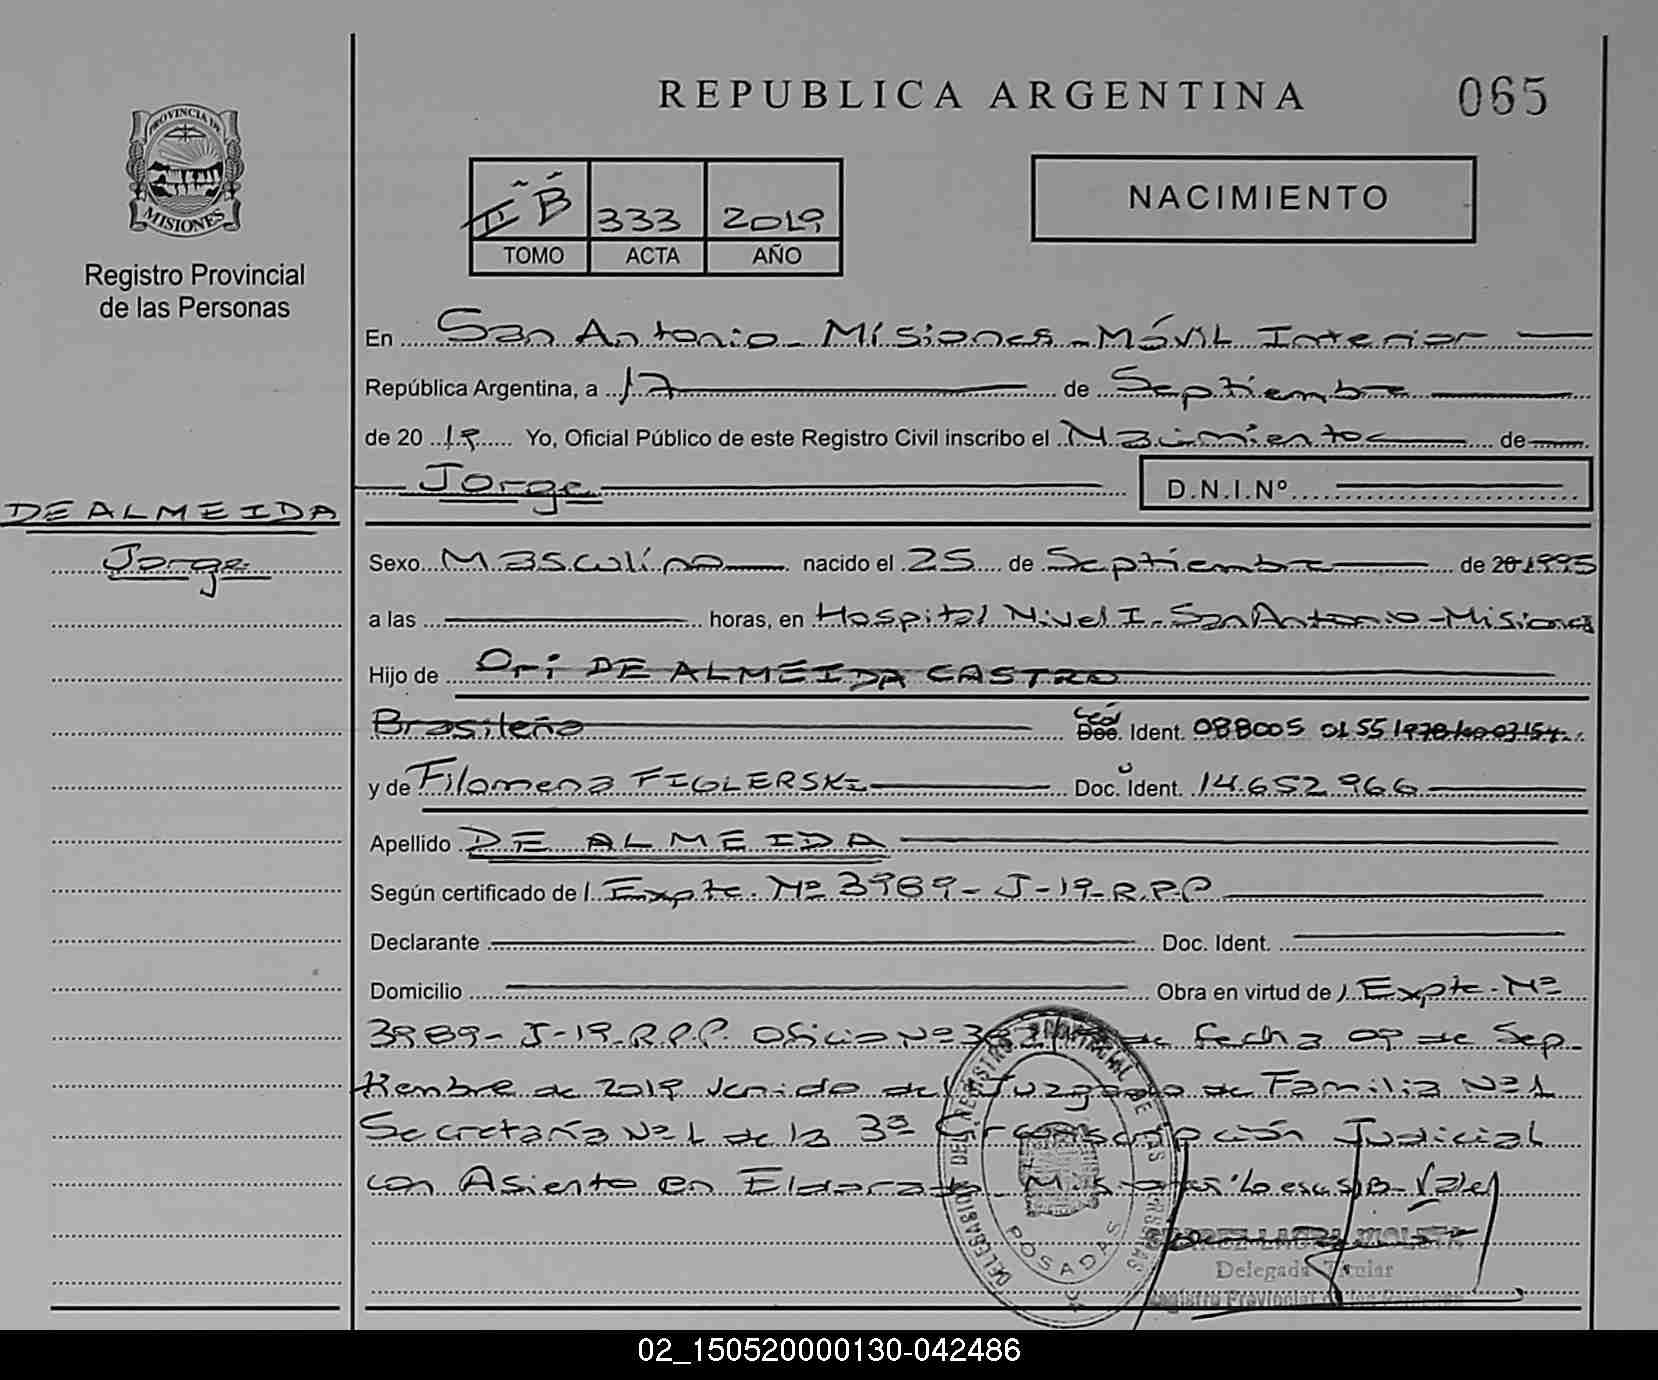 REPUBLICA ARGENTINA
065
PROVINCIA DE
MISIONES
Registro Provincial
de las Personas
II B 333 2019
TOMO ACTA AÑO
NACIMIENTO
En San Antonio - Misiones - Móvil Interior
República Argentina, a 17 de Septiembre
de 2019 Yo, Oficial Público de este Registro Civil inscribo el Nacimiento de
Jorge D.N.I.Nº
DE ALMEIDA
Jorge
Sexo Masculino nacido el 25 de Septiembre de 20 1995
a las horas, en Hospital Nivel I - San Antonio - Misiones
Hijo de Ori DE ALMEIDA CASTRO
Brasileño Doc. Ident. 088005 01 55 1978
y de Filomena FIGLERSKI Doc. Ident. 14.652.966
Apellido DE ALMEIDA
Según certificado de Expte. Nº 3989 - J-19-R.P.P
Declarante Doc. Ident.
Domicilio Obra en virtud de Expte. Nº
3989 - J-19-R.P.P. Oficio Nº de fecha 09 de Sep
tiembre de 2019 venido del Juzgado de Familia Nº 1
Secretaría Nº 1 de la 3ª Circunscripción Judicial
con Asiento en Eldorado - Misiones
DELEGACION DEL REGISTRO PROVINCIAL DE LAS PERSONAS
POSADAS
Delegada Titular
Registro Provincial de las Personas
02_150520000130-042486